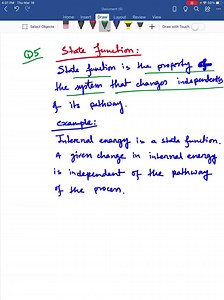 4:01 PM Thu Mar 18
Document (4)
Home Insert Draw Layout Review View
Select Objects
Draw with Touch
Q5
State function:
State function is the property of
the system that changes independently
of its pathway.
example:
Internal energy is a state function.
A given change in internal energy
is independent of the pathway
of the process.